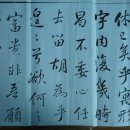 休已矣乎寓形
宇内復幾時
曷不委心任
去留胡為乎
遑〻兮欲何之
富貴非吾願